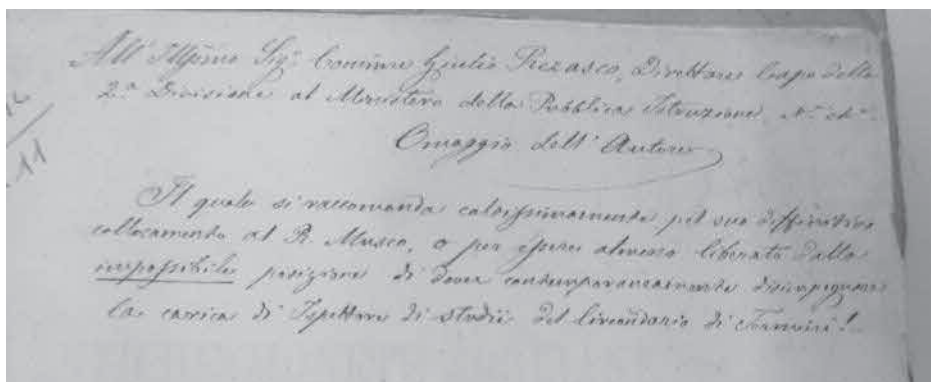 All'Illmo Sigr Commre Giulio Rezasco, Direttore Capo della
2.a Divisione al Ministero della Pubblica Istruzione
Omaggio dell'Autore
Il quale si raccomanda caldissimamente pel suo diffinitivo
collocamento al R. Museo, o per essere almeno liberato dalla
impossibile posizione di dover contemporaneamente disimpegnare
la carica di Ispettore di studii del Circondario di
11